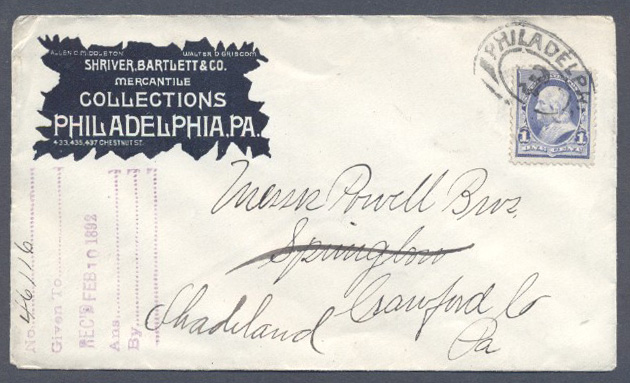 ALLEN C. MIDDLETON WALTER D GRISCOM
SHRIVER, BARTLETT & CO.
MERCANTILE
COLLECTIONS
PHILADELPHIA, PA.
433, 435, 437 CHESTNUT ST.
PHILADELPH
1 ONE CENT 1
Messrs Powell Bros.
Shadeland Crawford Co
Pa
No. 46116
Given To
REC'D FEB 10 1892
Ans
By